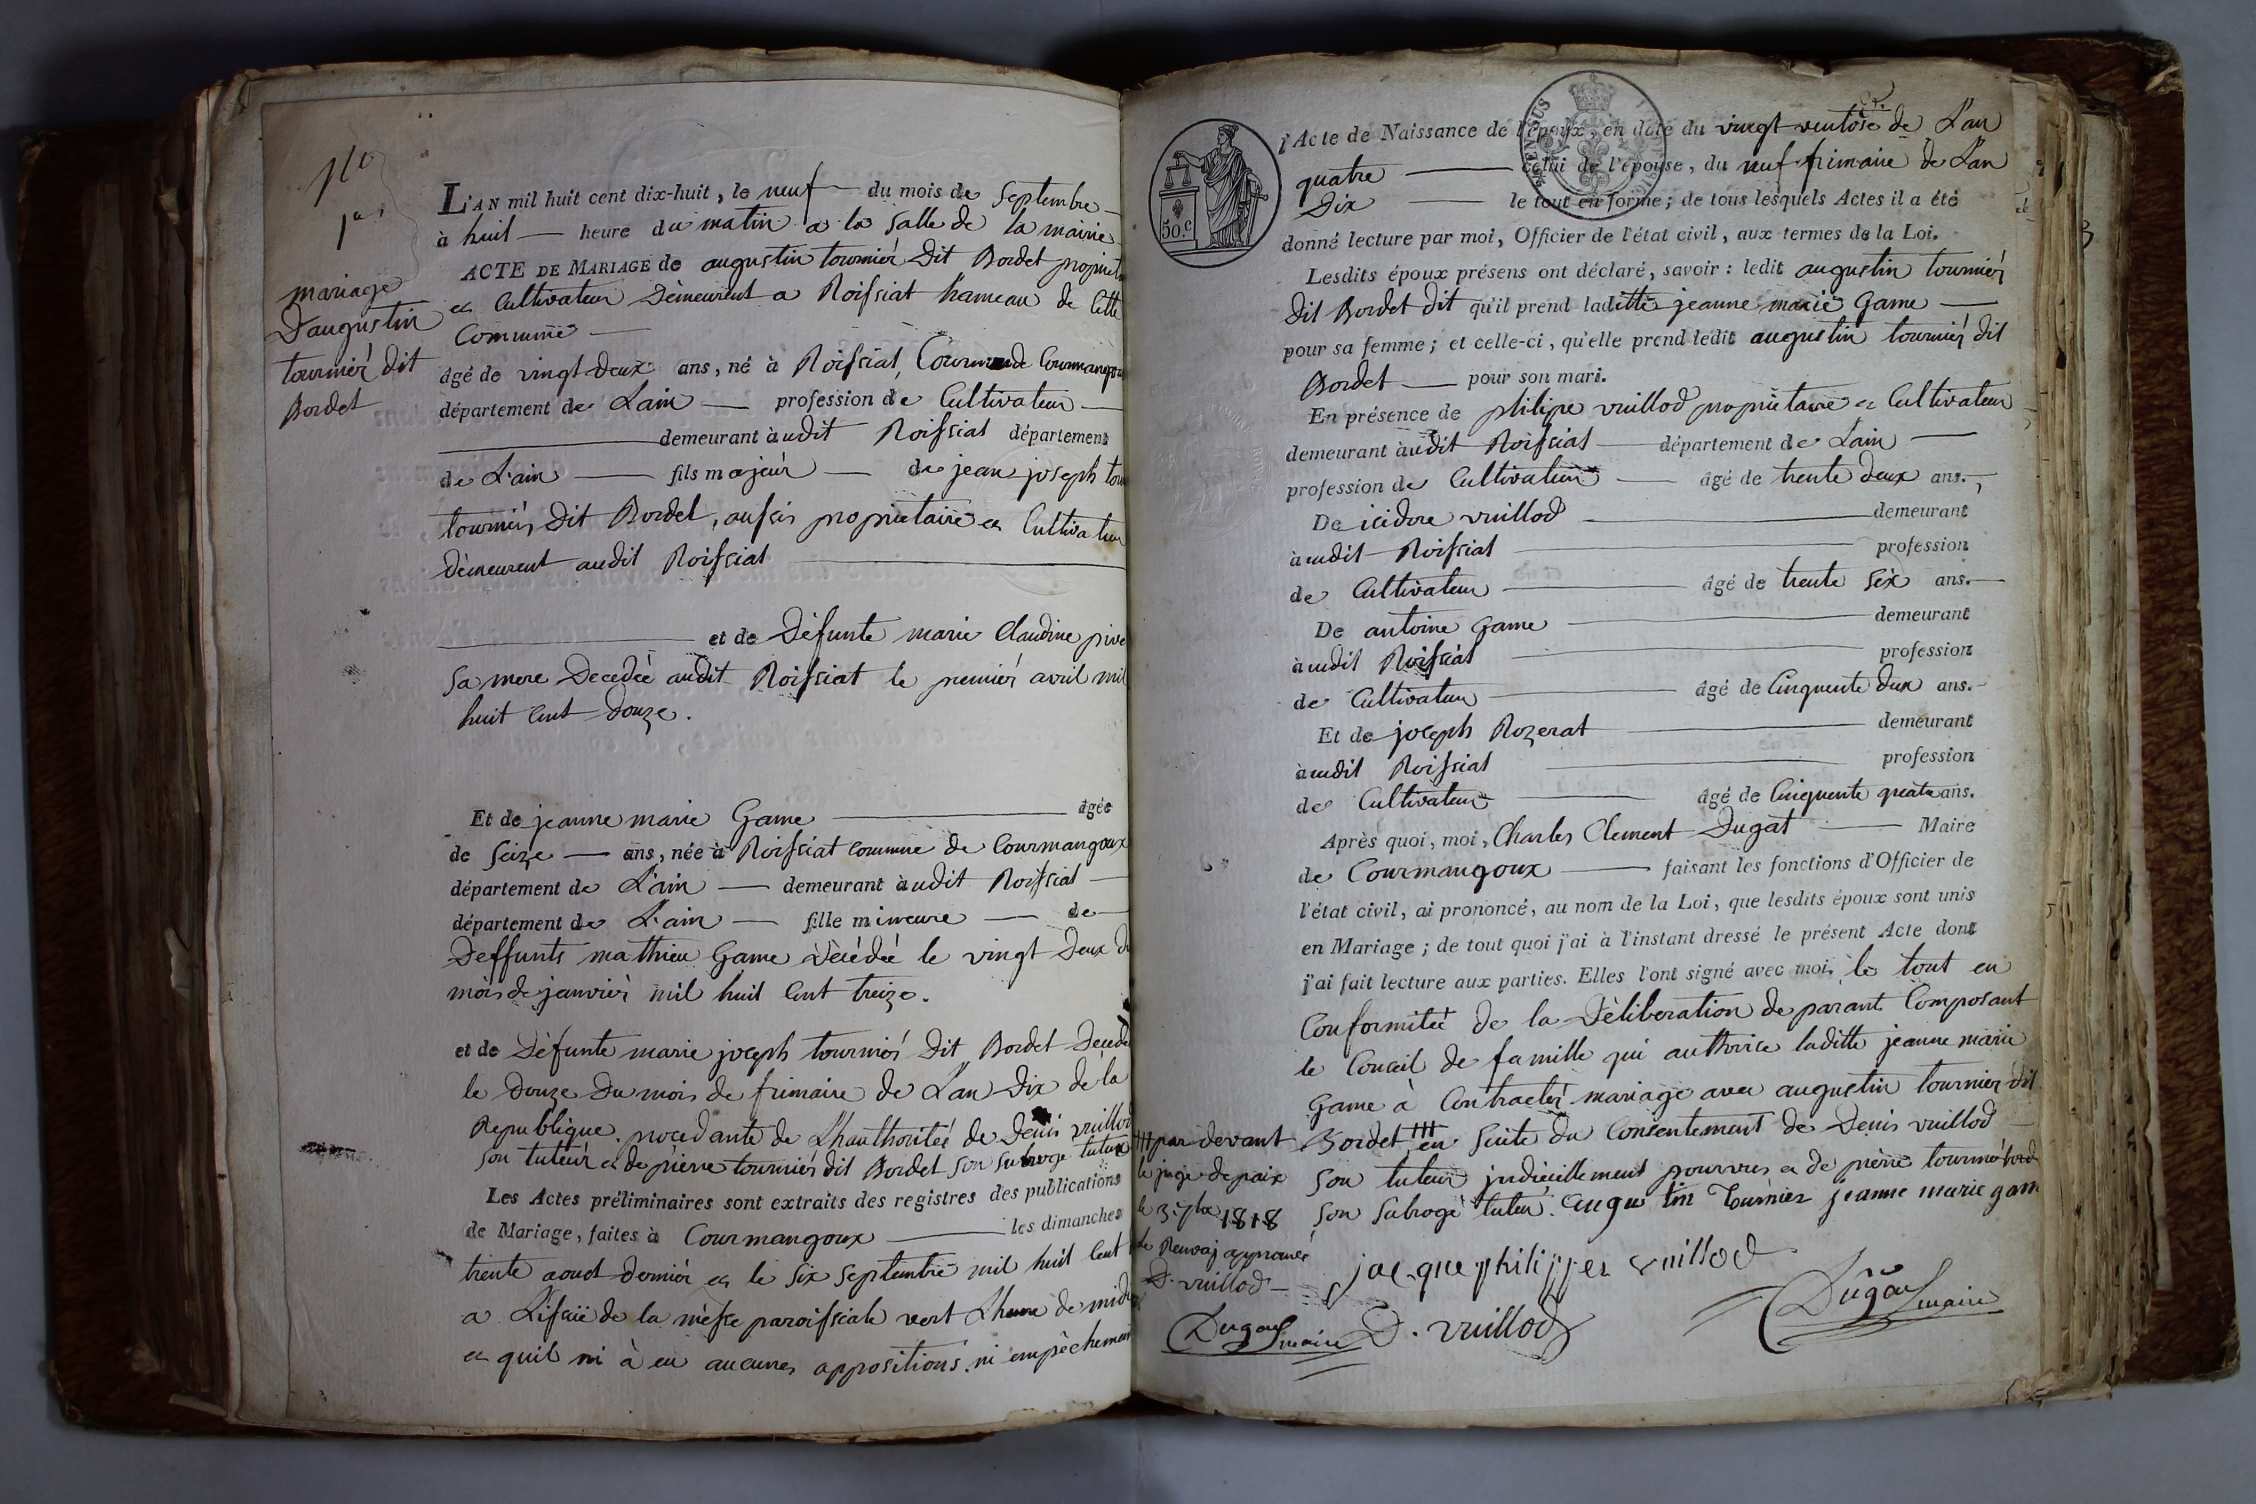 No
1er
mariage
D'augustin
tourniér dit
Bordet
L'AN mil huit cent dix-huit, le neuf du mois de Septembre
à huit heure du matin a la Salle de la mairie
ACTE DE MARIAGE de augustin tournier Dit Bordet propriet
et Cultivateur Dèmeurent a Roissiat hameau de Cette
Commune
âgé de vingt deux ans, né à Roissiat, Courmangoux
département de L'ain profession de Cultivateur
demeurant à udit Roissiat département
de L'ain fils majeur de jean joseph
tourniér Dit Bordet, aussis proprietaire et Cultivateur
Dèmeurent audit Roissiat
et de Défunte marie Claudine
Sa mere Decedée audit Roissiat le premiér avril mil
huit Cent Douze.
Et de jeanne marie Game âgée
de Seize ans, née à Roissiat Commune de Courmangoux
département de L'ain demeurant à udit Roissiat
département de L'ain fille mineure de
Deffunts mathieu Game Décédée le vingt Deux du
mois de janviér mil huit Cent treize.
et de Défunte marie joseph tourniér Dit Bordet Decede
le Douze Du mois de frimaire de L'an Dix de la
Republique. procedante de L'hauthoritée de Denis vuillod
Son tuteur et de pierre tourniér dit Bordet Son Subroge tuteur
Les Actes préliminaires sont extraits des registres des publications
de Mariage, faites à Courmangoux les dimanches
trente aoust dernier et le Six Septembre mil huit Cent
a L'issüe de la mèsse paroissiale vert L'heure de midi
et quil ni à eu aucunes appositions. ni empêchement
50.c
l'Acte de Naissance de l'époux, en date du vingt ventose de L'an
quatre celui de l'épouse, du neuf frimaire de L'an
Dix le tout en forme; de tous lesquels Actes il a été
donné lecture par moi, Officier de l'état civil, aux termes de la Loi.
Lesdits époux présens ont déclaré, savoir : ledit augustin tourniér
dit Bordet dit qu'il prend laditte jeanne marie Game
pour sa femme; et celle-ci, qu'elle prend ledit augustin tourniér dit
Bordet pour son mari.
En présence de philipe vuillod proprietaire et Cultivateur
demeurant à udit Roissiat département de L'ain
profession de Cultivateur âgé de trente deux ans.
De isidore vuillod demeurant
à udit Roissiat profession
de Cultivateur âgé de trente Six ans.
De antoine Game demeurant
à udit Roissiat profession
de Cultivateur âgé de Cinquente Deux ans.
Et de joseph Rozerat demeurant
à udit Roissiat profession
de Cultivateur âgé de Cinquente quatre ans.
Après quoi, moi, Charles Clement Dugat Maire
de Courmangoux faisant les fonctions d'Officier de
l'état civil, ai prononcé, au nom de la Loi, que lesdits époux sont unis
en Mariage; de tout quoi j'ai à l'instant dressé le présent Acte dont
j'ai fait lecture aux parties. Elles l'ont signé avec moi, le tout en
Conformitée de la Déliberation de parant Composant
le Conseil de famille qui authorise laditte jeanne marie
Game à Contractér mariage avec augustin tournier dit
Bordet en Suite du Consentement de Denis vuillod
Son tuteur judicillement pourvus et de pierre tourniér
Son Subrogé tuteur. augu tin Tournier jeanne marie gam
par devant
le juge de paix
le 3 7bre 1818
le Renvoi approuvé
D. vuillod
Dugat maire
jacque philippes vuillod
D. vuillod
Dugat maire